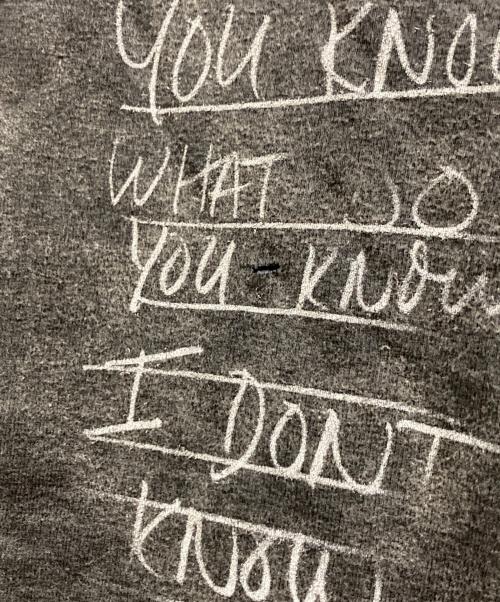 YOU KNO
WHAT DO
YOU - KNOW
I DONT
KNOW